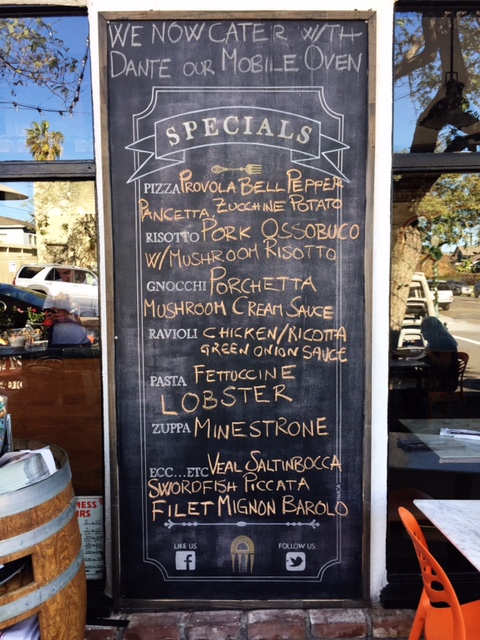 WE NOW CATER WITH
DANTE OUR MOBILE OVEN
SPECIALS
PIZZA PROVOLA BELL PEPPER
PANCETTA, ZUCCHINE POTATO
RISOTTO PORK OSSOBUCO
W/MUSHROOM RISOTTO
GNOCCHI PORCHETTA
MUSHROOM CREAM SAUCE
RAVIOLI CHICKEN/RICOTTA
GREEN ONION SAUCE
PASTA FETTUCCINE
LOBSTER
ZUPPA MINESTRONE
ECC...ETC VEAL SALTINBOCCA
SWORDFISH PICCATA
FILET MIGNON BAROLO
LIKE US FOLLOW US